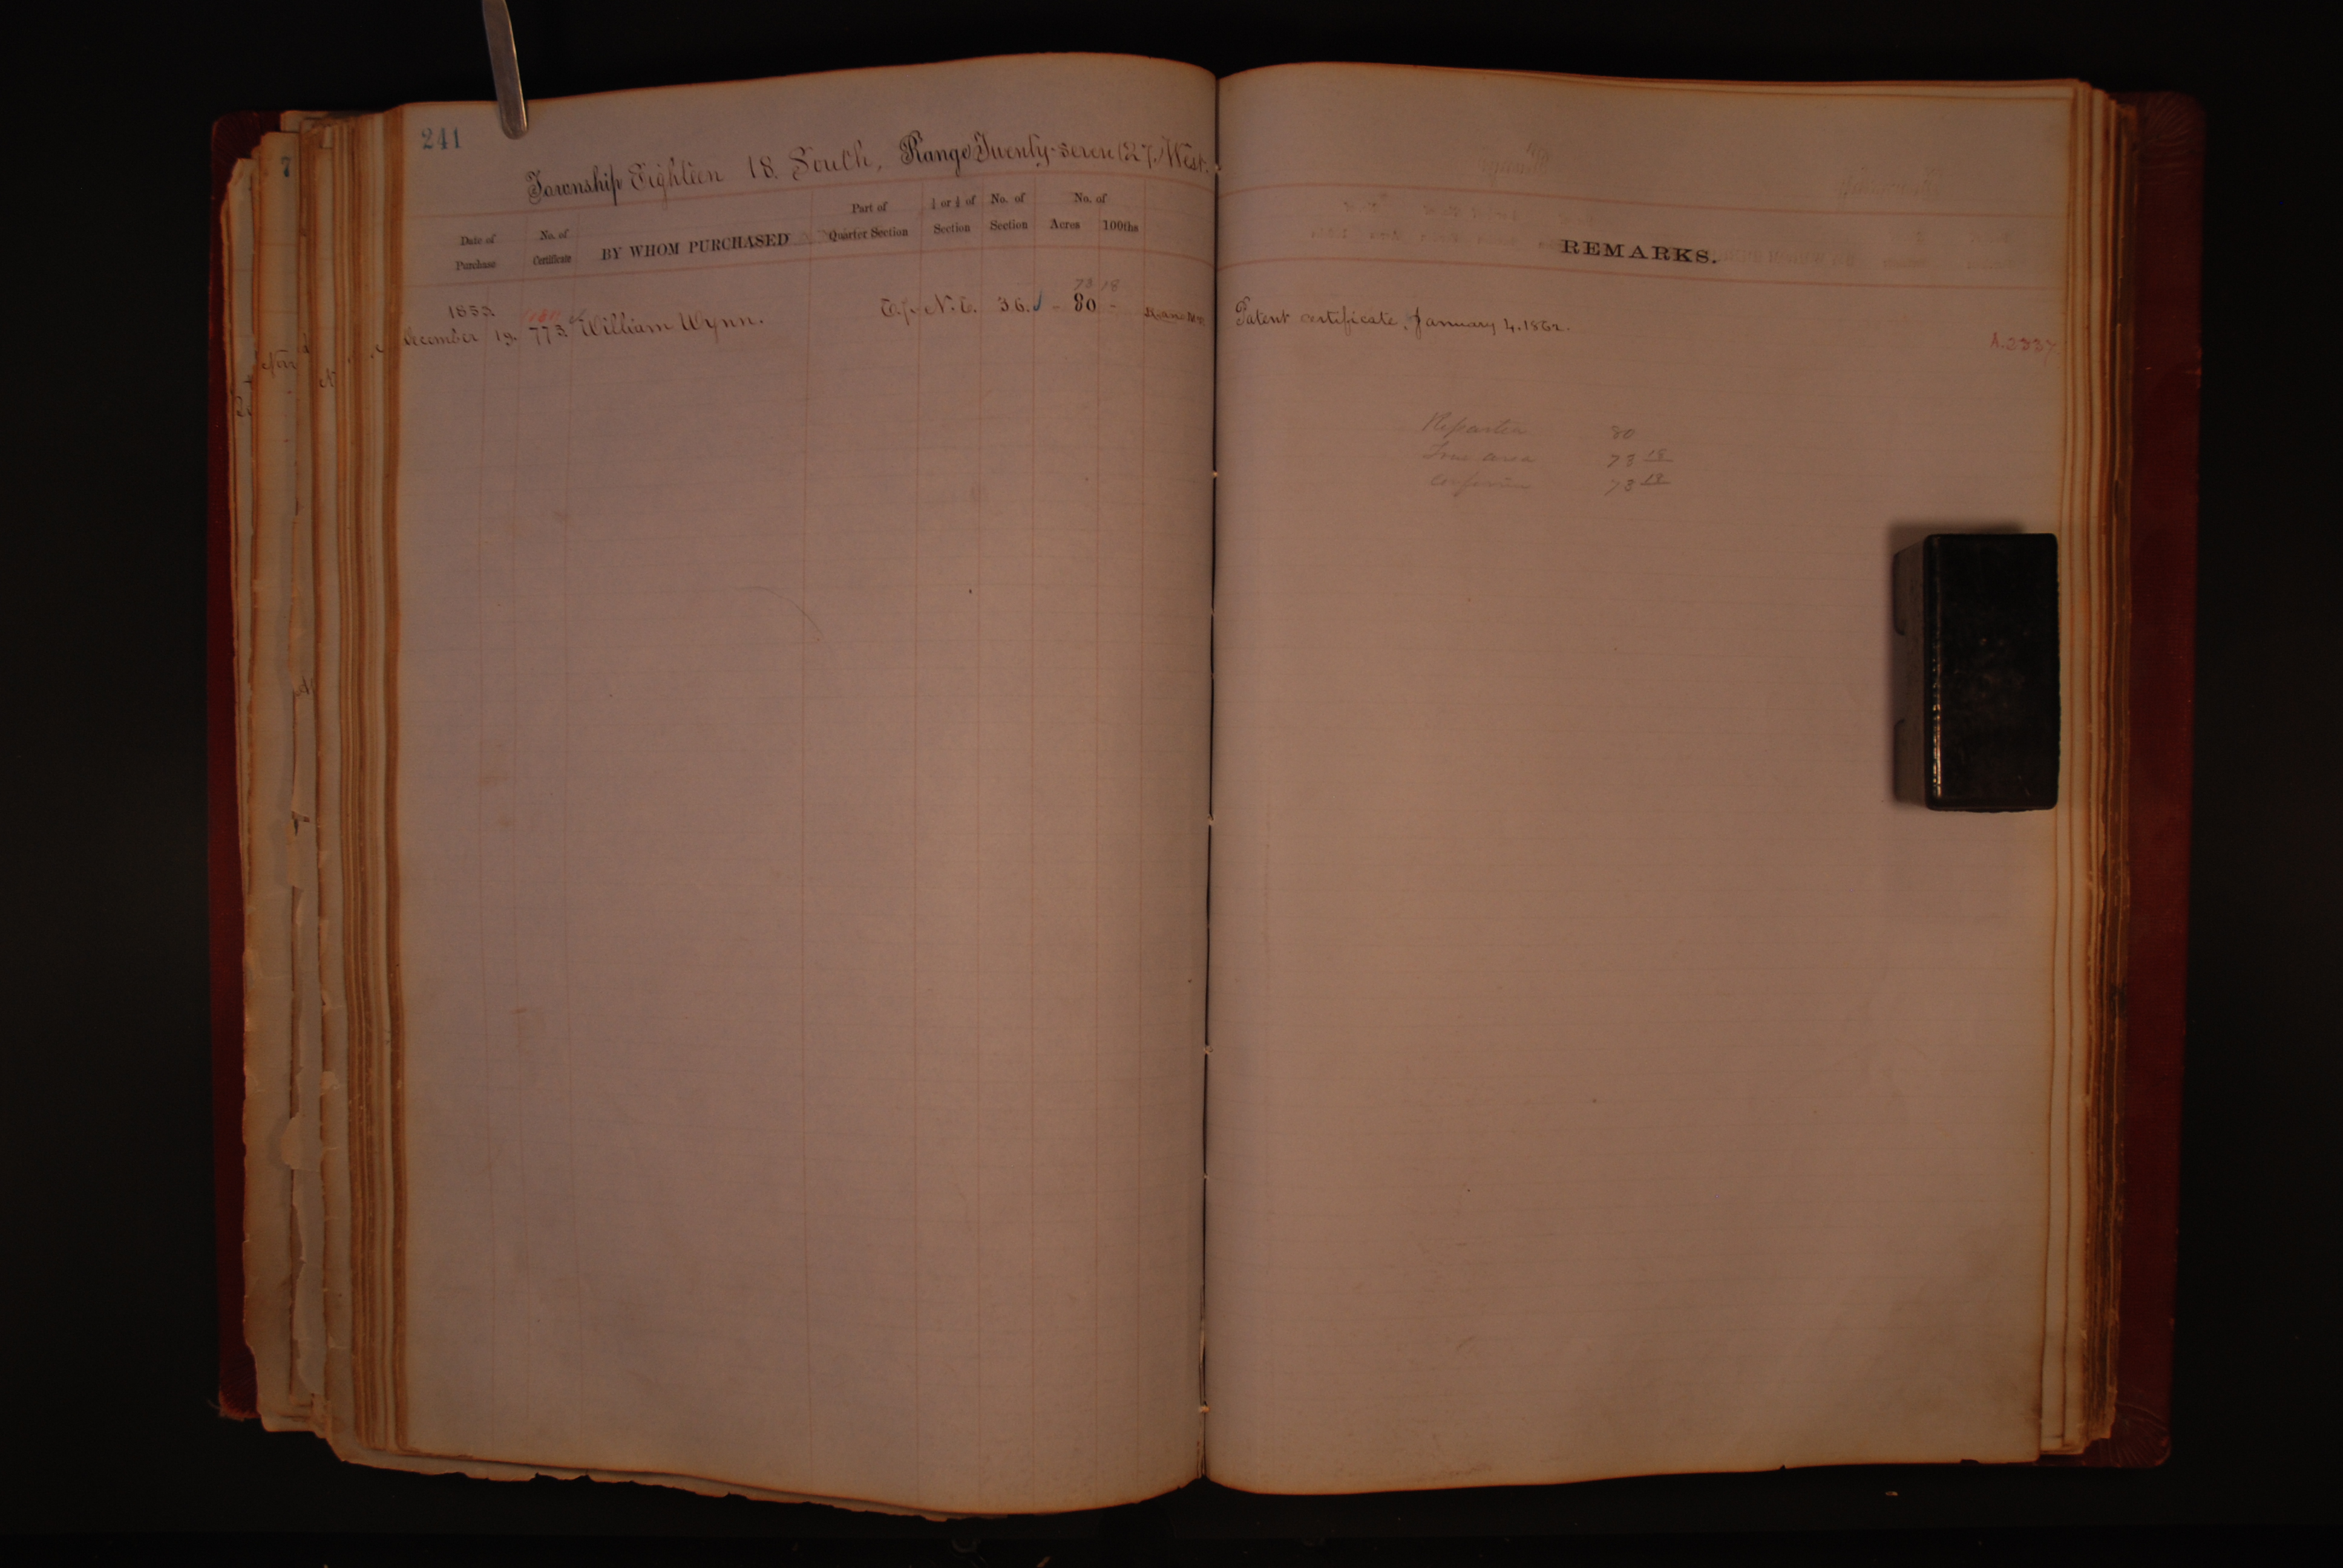 241
Township Eighteen 18. South, Range Twenty-seven (27) West.
Date of Purchase
No. of Certificate
BY WHOM PURCHASED
Part of Quarter Section
½ or ¼ of Section
No. of Section
No. of
Acres 100ths
REMARKS.
73 18
1853.
December 19. 773. William Wynn. N.E. 36. 80 -
Patent certificate, January 4. 1862.
A. 2337.
Reported 80
True area 73 18
73 18
7